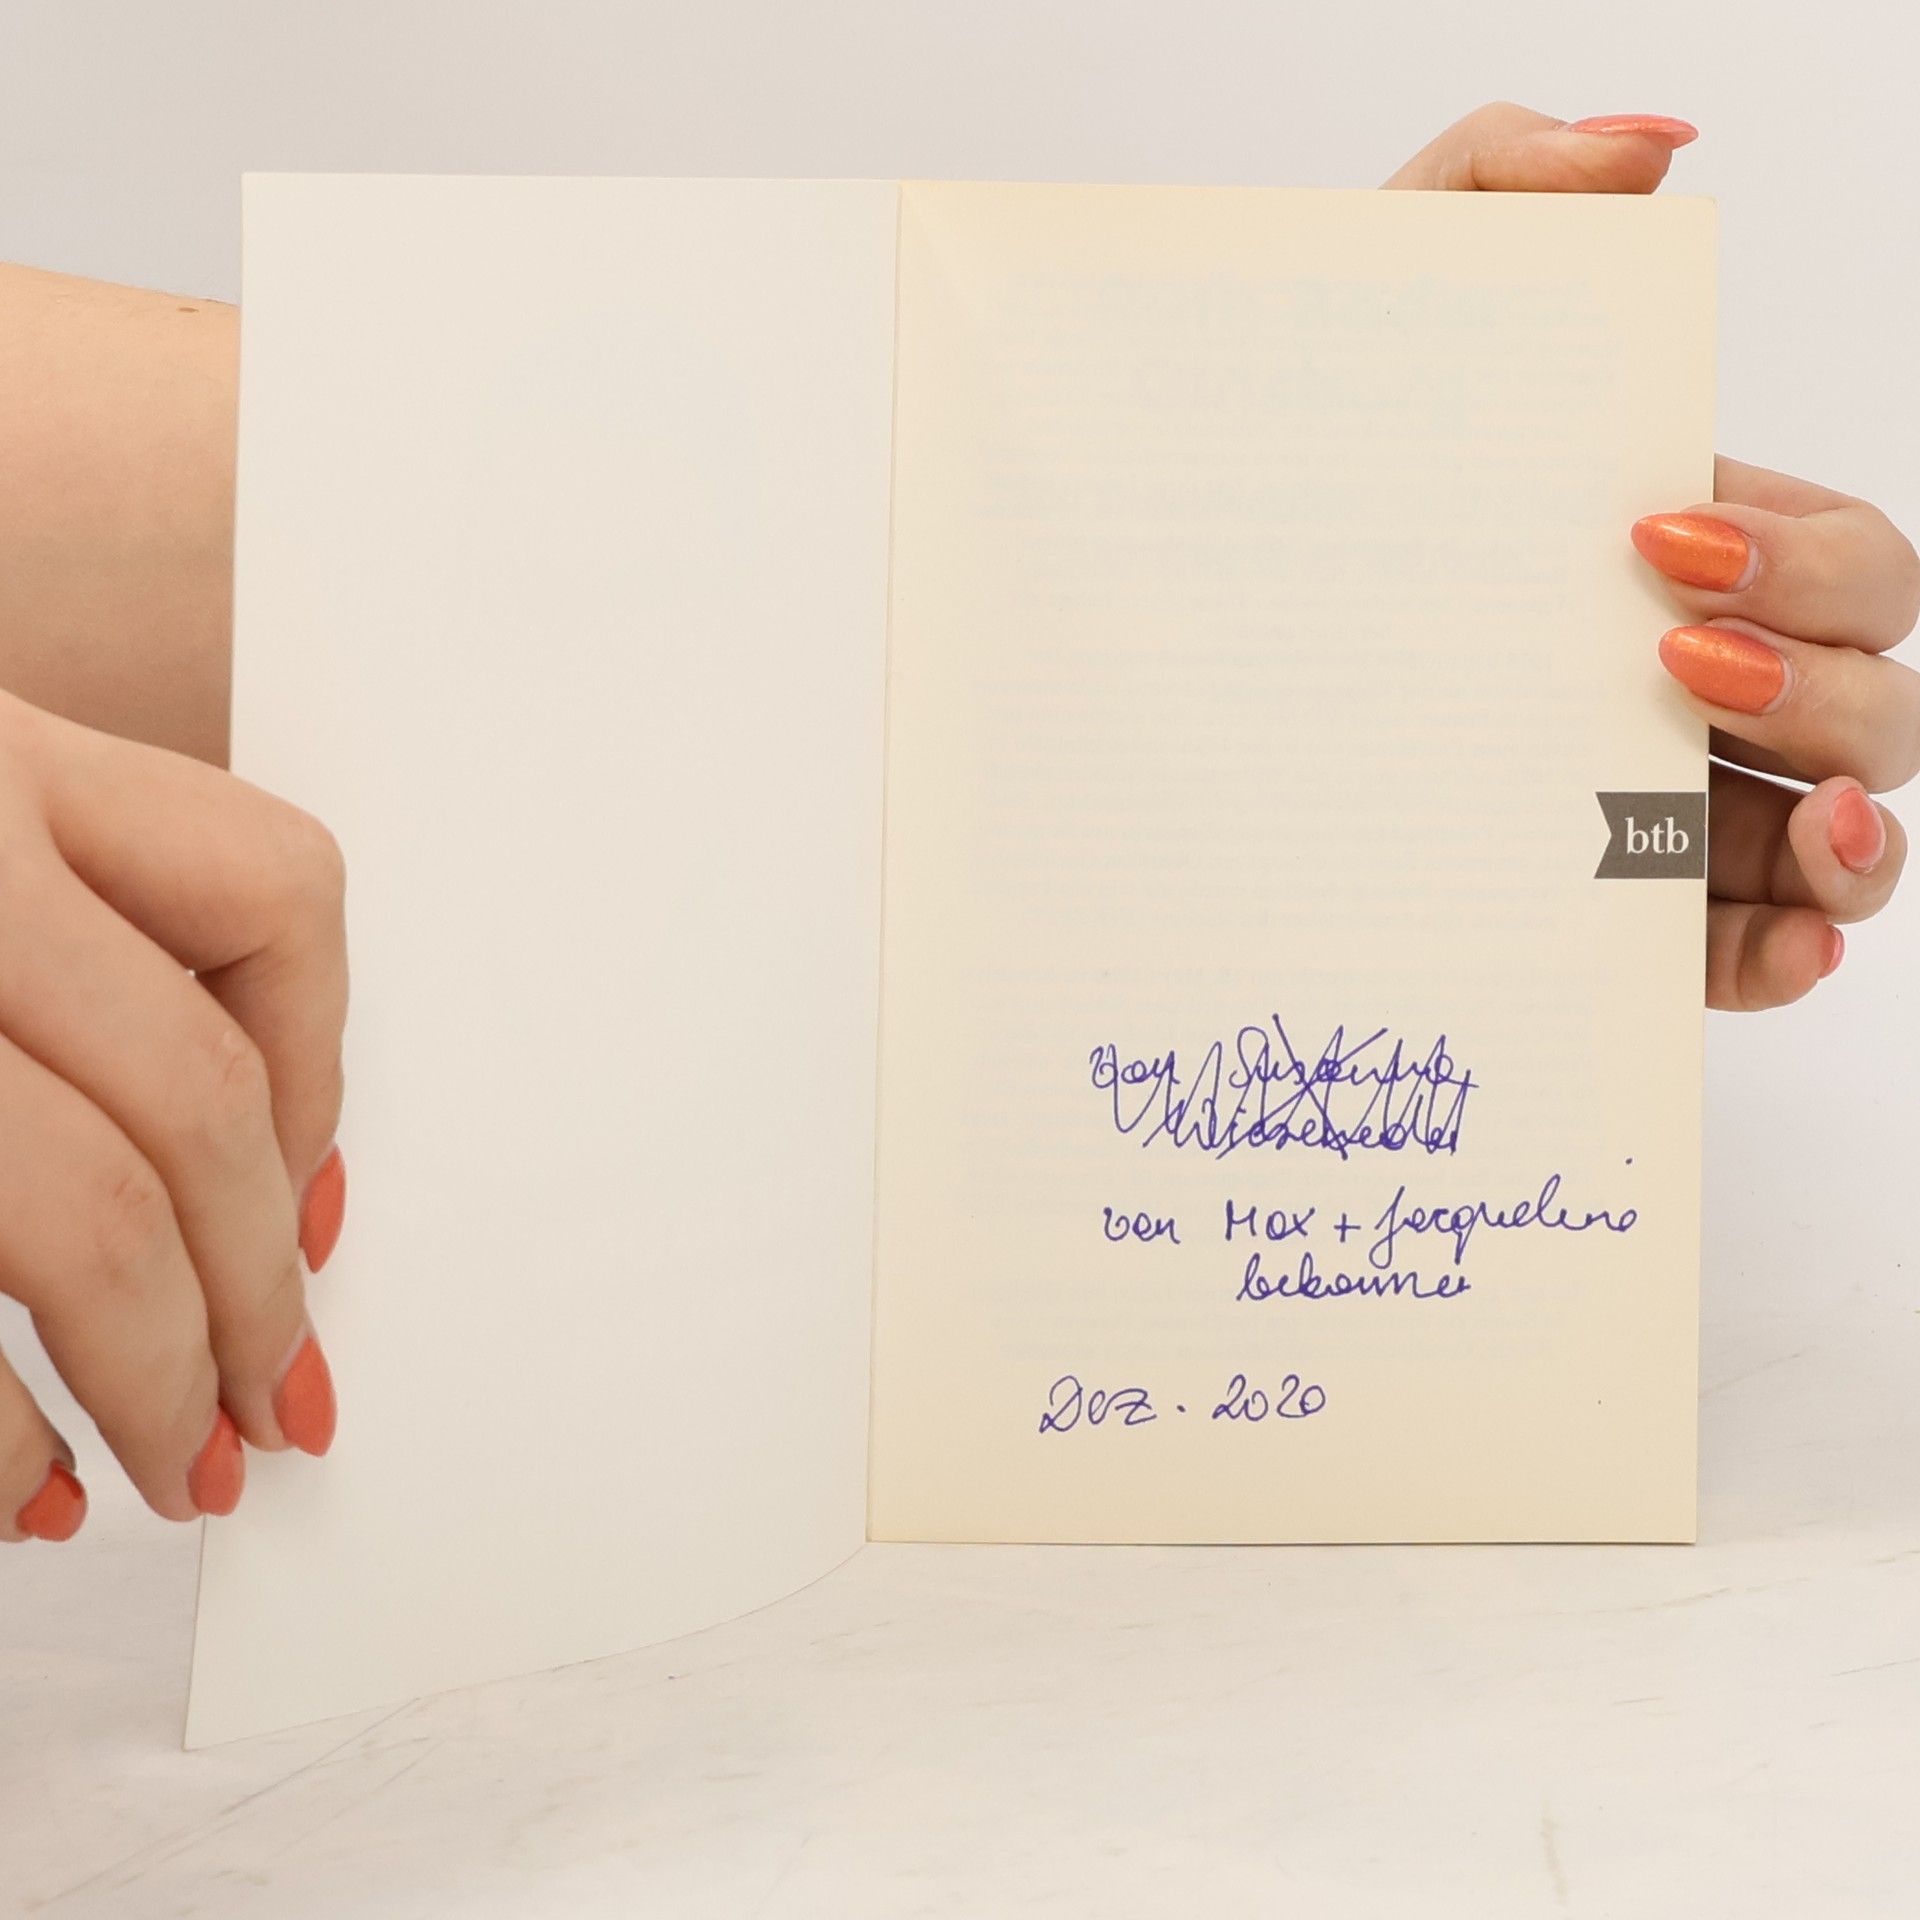 btb
von Susanne
von Max + Jacqueline
bekommen
Dez. 2020